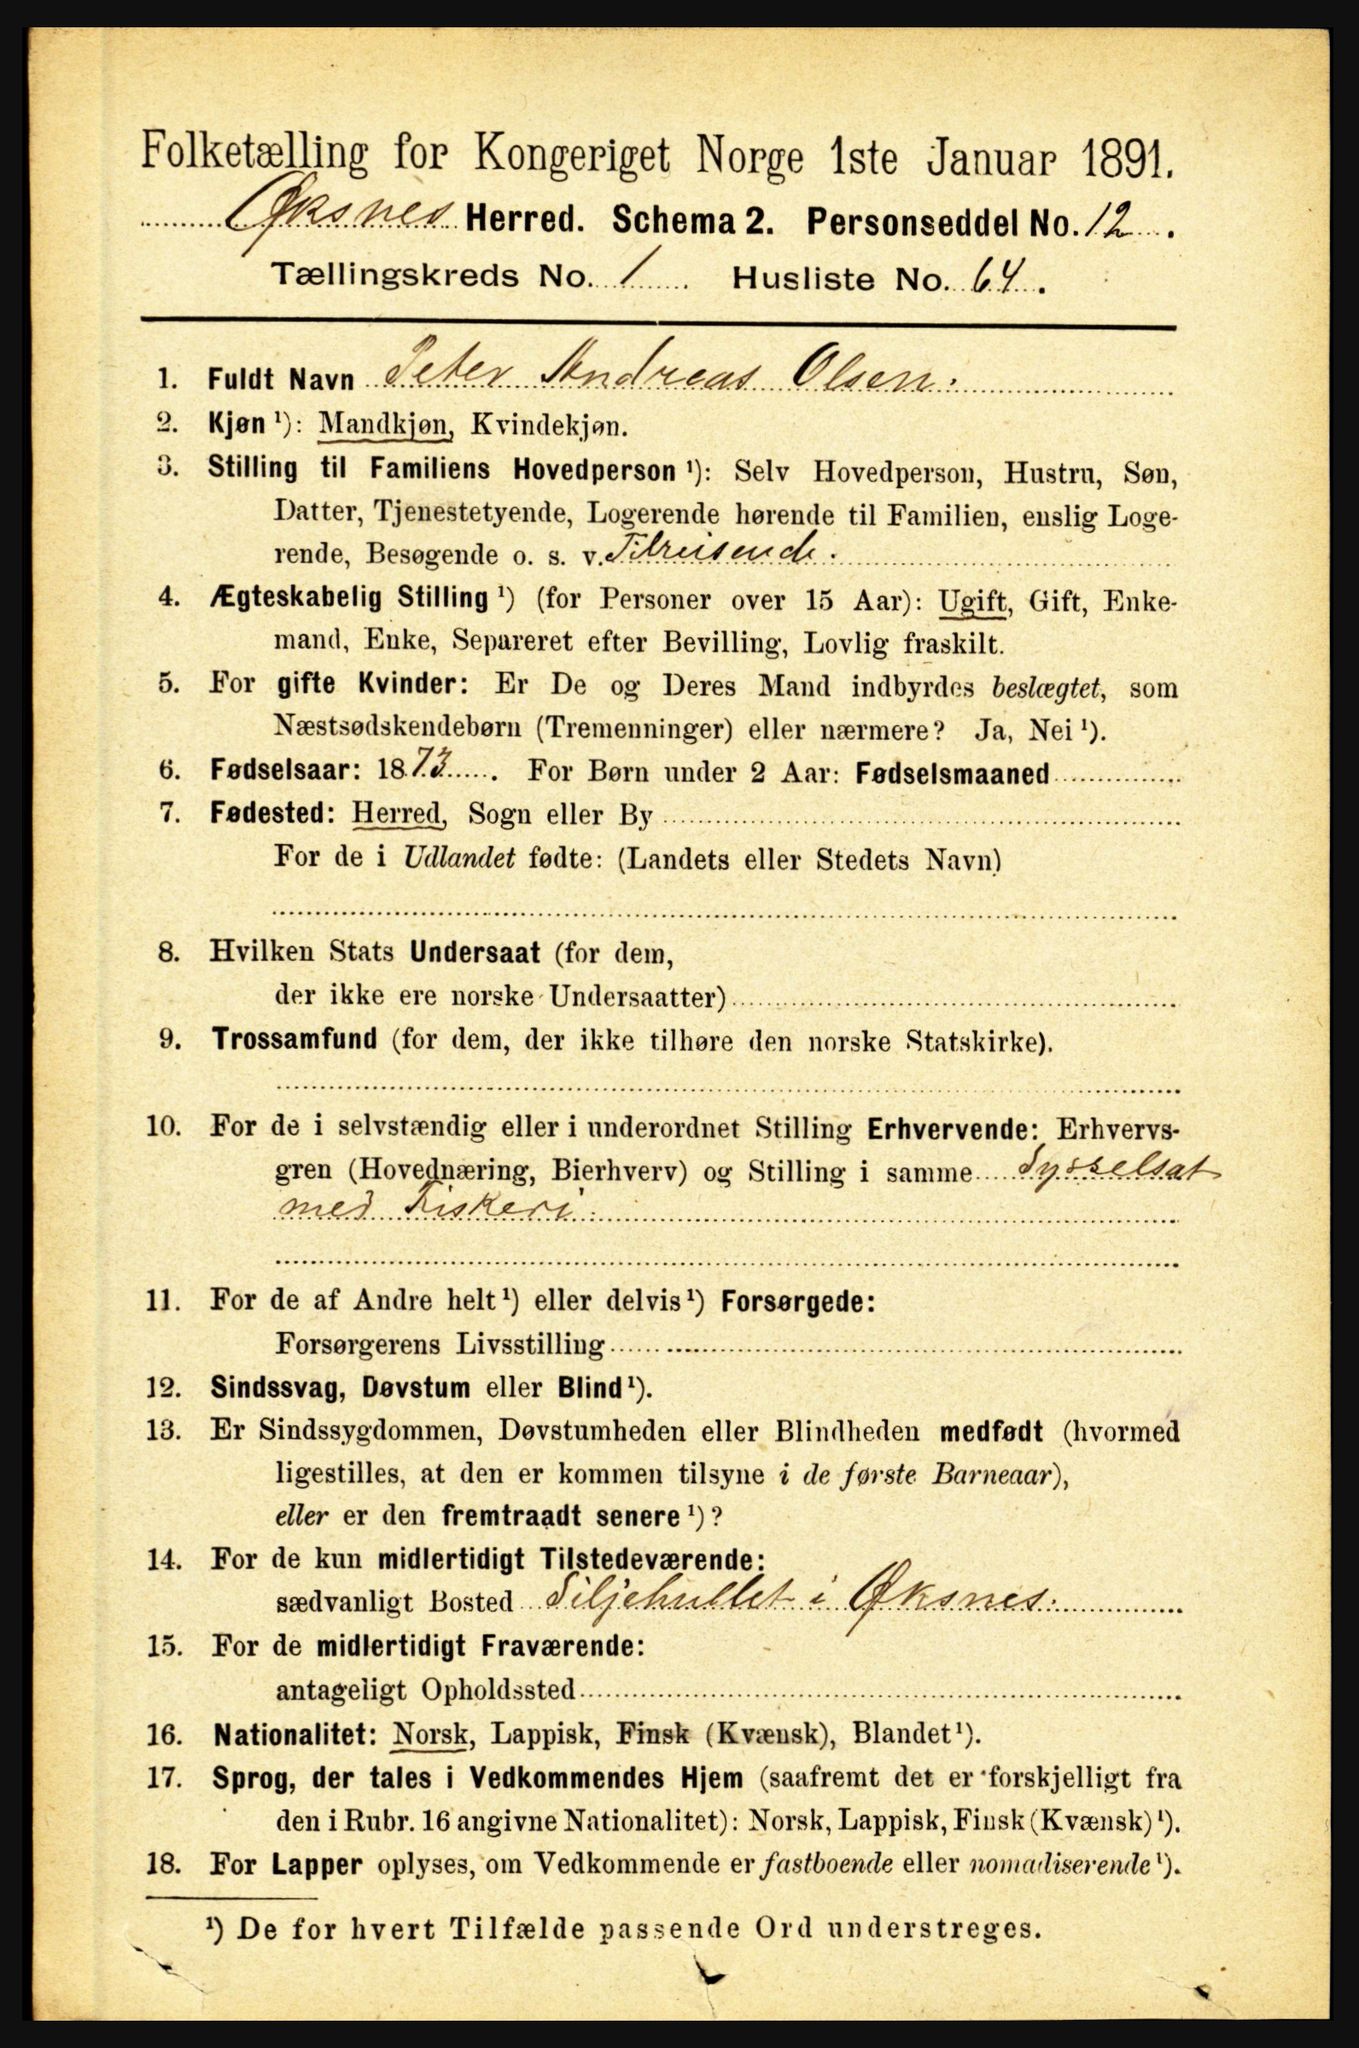 Folketælling for Kongeriget Norge 1ste Januar 1891.
Øksnes Herred. Schema 2. Personseddel No. 12.
Tællingskreds No. 1 Husliste No. 64.
1. Fuldt Navn Peter Andreas Olsen.
2. Kjøn ¹): Mandkjøn, Kvindekjøn.
3. Stilling til Familiens Hovedperson ¹): Selv Hovedperson, Hustru, Søn,
Datter, Tjenestetyende, Logerende hørende til Familien, enslig Loge-
rende, Besøgende o. s. v. Tilreisende.
4. Ægteskabelig Stilling ¹) (for Personer over 15 Aar): Ugift, Gift, Enke-
mand, Enke, Separeret efter Bevilling, Lovlig fraskilt.
5. For gifte Kvinder: Er De og Deres Mand indbyrdes beslægtet, som
Næstsødskendebørn (Tremenninger) eller nærmere? Ja, Nei ¹).
6. Fødselsaar: 1873. For Børn under 2 Aar: Fødselsmaaned
7. Fødested: Herred, Sogn eller By
For de i Udlandet fødte: (Landets eller Stedets Navn)
8. Hvilken Stats Undersaat (for dem,
der ikke ere norske Undersaatter)
9. Trossamfund (for dem, der ikke tilhøre den norske Statskirke).
10. For de i selvstændig eller i underordnet Stilling Erhvervende: Erhvervs-
gren (Hovednæring, Bierhverv) og Stilling i samme Sysselsat
med Fiskeri.
11. For de af Andre helt ¹) eller delvis ¹) Forsørgede:
Forsørgerens Livsstilling
12. Sindssvag, Døvstum eller Blind ¹).
13. Er Sindssygdommen, Døvstumheden eller Blindheden medfødt (hvormed
ligestilles, at den er kommen tilsyne i de første Barneaar),
eller er den fremtraadt senere ¹)?
14. For de kun midlertidigt Tilstedeværende:
sædvanligt Bosted Siljehullet i Øksnes.
15. For de midlertidigt Fraværende:
antageligt Opholdssted
16. Nationalitet: Norsk, Lappisk, Finsk (Kvænsk), Blandet ¹).
17. Sprog, der tales i Vedkommendes Hjem (saafremt det er forskjelligt fra
den i Rubr. 16 angivne Nationalitet): Norsk, Lappisk, Finsk (Kvænsk) ¹).
18. For Lapper oplyses, om Vedkommende er fastboende eller nomadiserende ¹).
¹) De for hvert Tilfælde passende Ord understreges.